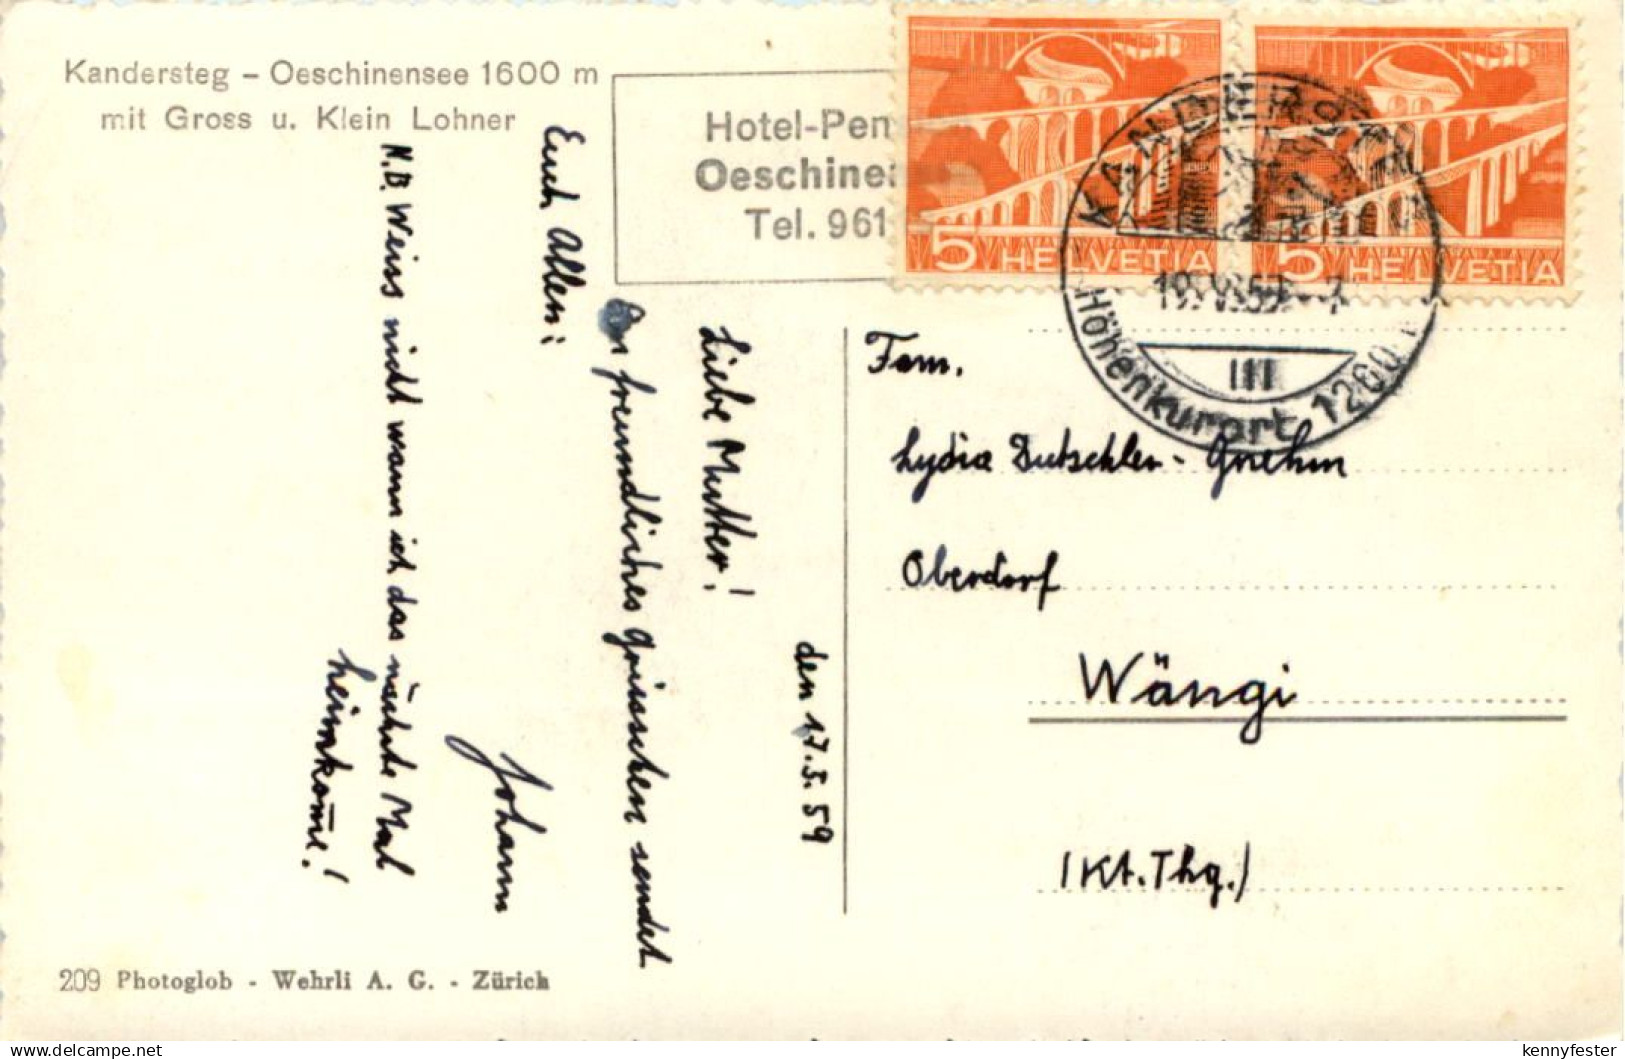 Kandersteg – Oeschinensee 1600 m
mit Gross u. Klein Lohner
Hotel-Pen
Oeschine
Tel. 961
5 HELVETIA
5 HELVETIA
KANDERSTEG
III
Höhenkurort 1260
den 17.5.59
Liebe Mutter!
freundliches Grüsschen sendet
Euch Allen:
Johann
N.B. Weiss nicht wann ich das nächste Mal
heimkom̄e!
Fam.
Lydia Dutschler - Gnehm
Oberdorf
Wängi
(Kt. Thg.)
209 Photoglob - Wehrli A. G. - Zürich
kennyfester